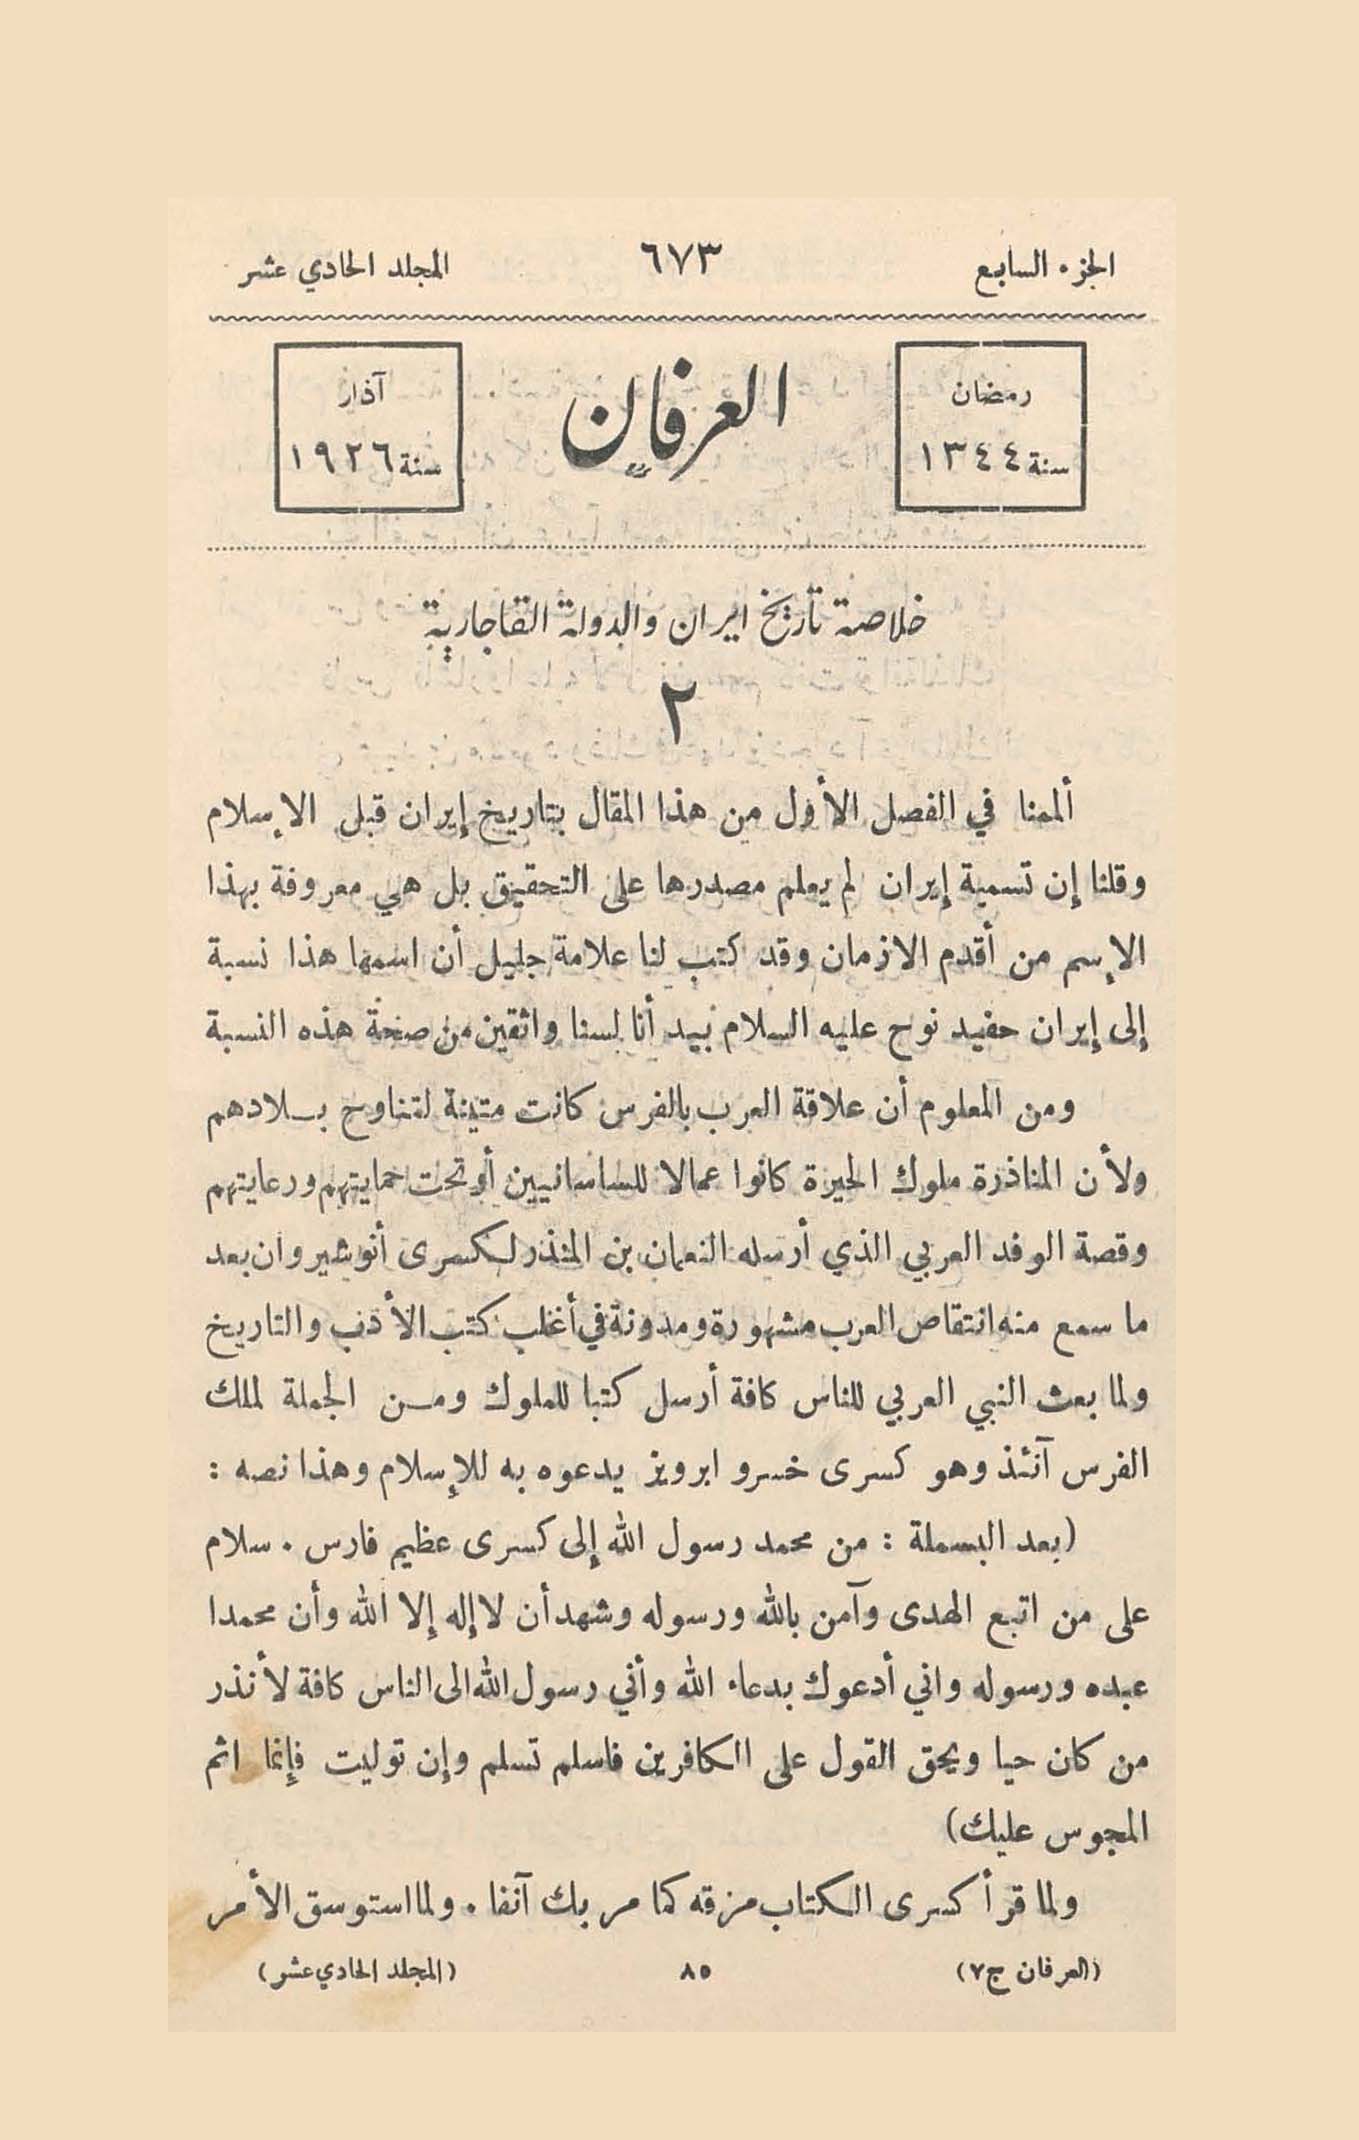 الجزء السابع ٦٧٣ المجلد الحادي عشر
رمضان
سنة ١٣٤٤
العرفان
آذار
سنة ١٩٢٦
خلاصة تاريخ ايران والدولة القاجارية
٢
ألممنا في الفصل الأول من هذا المقال بتاريخ إيران قبل الإسلام
وقلنا إن تسمية إيران لم يعلم مصدرها على التحقيق بل هي معروفة بهذا
الإسم من أقدم الازمان وقد كتب لنا علامة جليل أن اسمها هذا نسبة
إلى إيران حفيد نوح عليه السلام بيد أنا لسنا واثقين من صحة هذه النسبة
ومن المعلوم أن علاقة العرب بالفرس كانت متينة لتناوح بلادهم
ولأن المناذرة ملوك الحيرة كانوا عمالا للساسانيين أو تحت حمايتهم ورعايتهم
وقصة الوفد العربي الذي أرسله النعمان بن المنذر لكسرى أنوشيروان بعد
ما سمع منه انتقاص العرب مشهورة ومدونة في أغلب كتب الأدب والتاريخ
ولما بعث النبي العربي للناس كافة أرسل كتبا للملوك ومن الجملة لملك
الفرس آنئذ وهو كسرى خسرو ابرويز يدعوه به للإسلام وهذا نصه :
(بعد البسملة : من محمد رسول الله إلى كسرى عظيم فارس . سلام
على من اتبع الهدى وآمن بالله ورسوله وشهد أن لا إله إلا الله وأن محمدا
عبده ورسوله واني أدعوك بدعاء الله وأني رسول الله الى الناس كافة لأنذر
من كان حيا ويحق القول على الكافرين فاسلم تسلم وإن توليت فإنما اثم
المجوس عليك)
ولما قرأ كسرى الكتاب مزقه كما مر بك آنفا . ولما استوسق الأمر
(العرفان ج٧) ٨٥ (المجلد الحادي عشر)